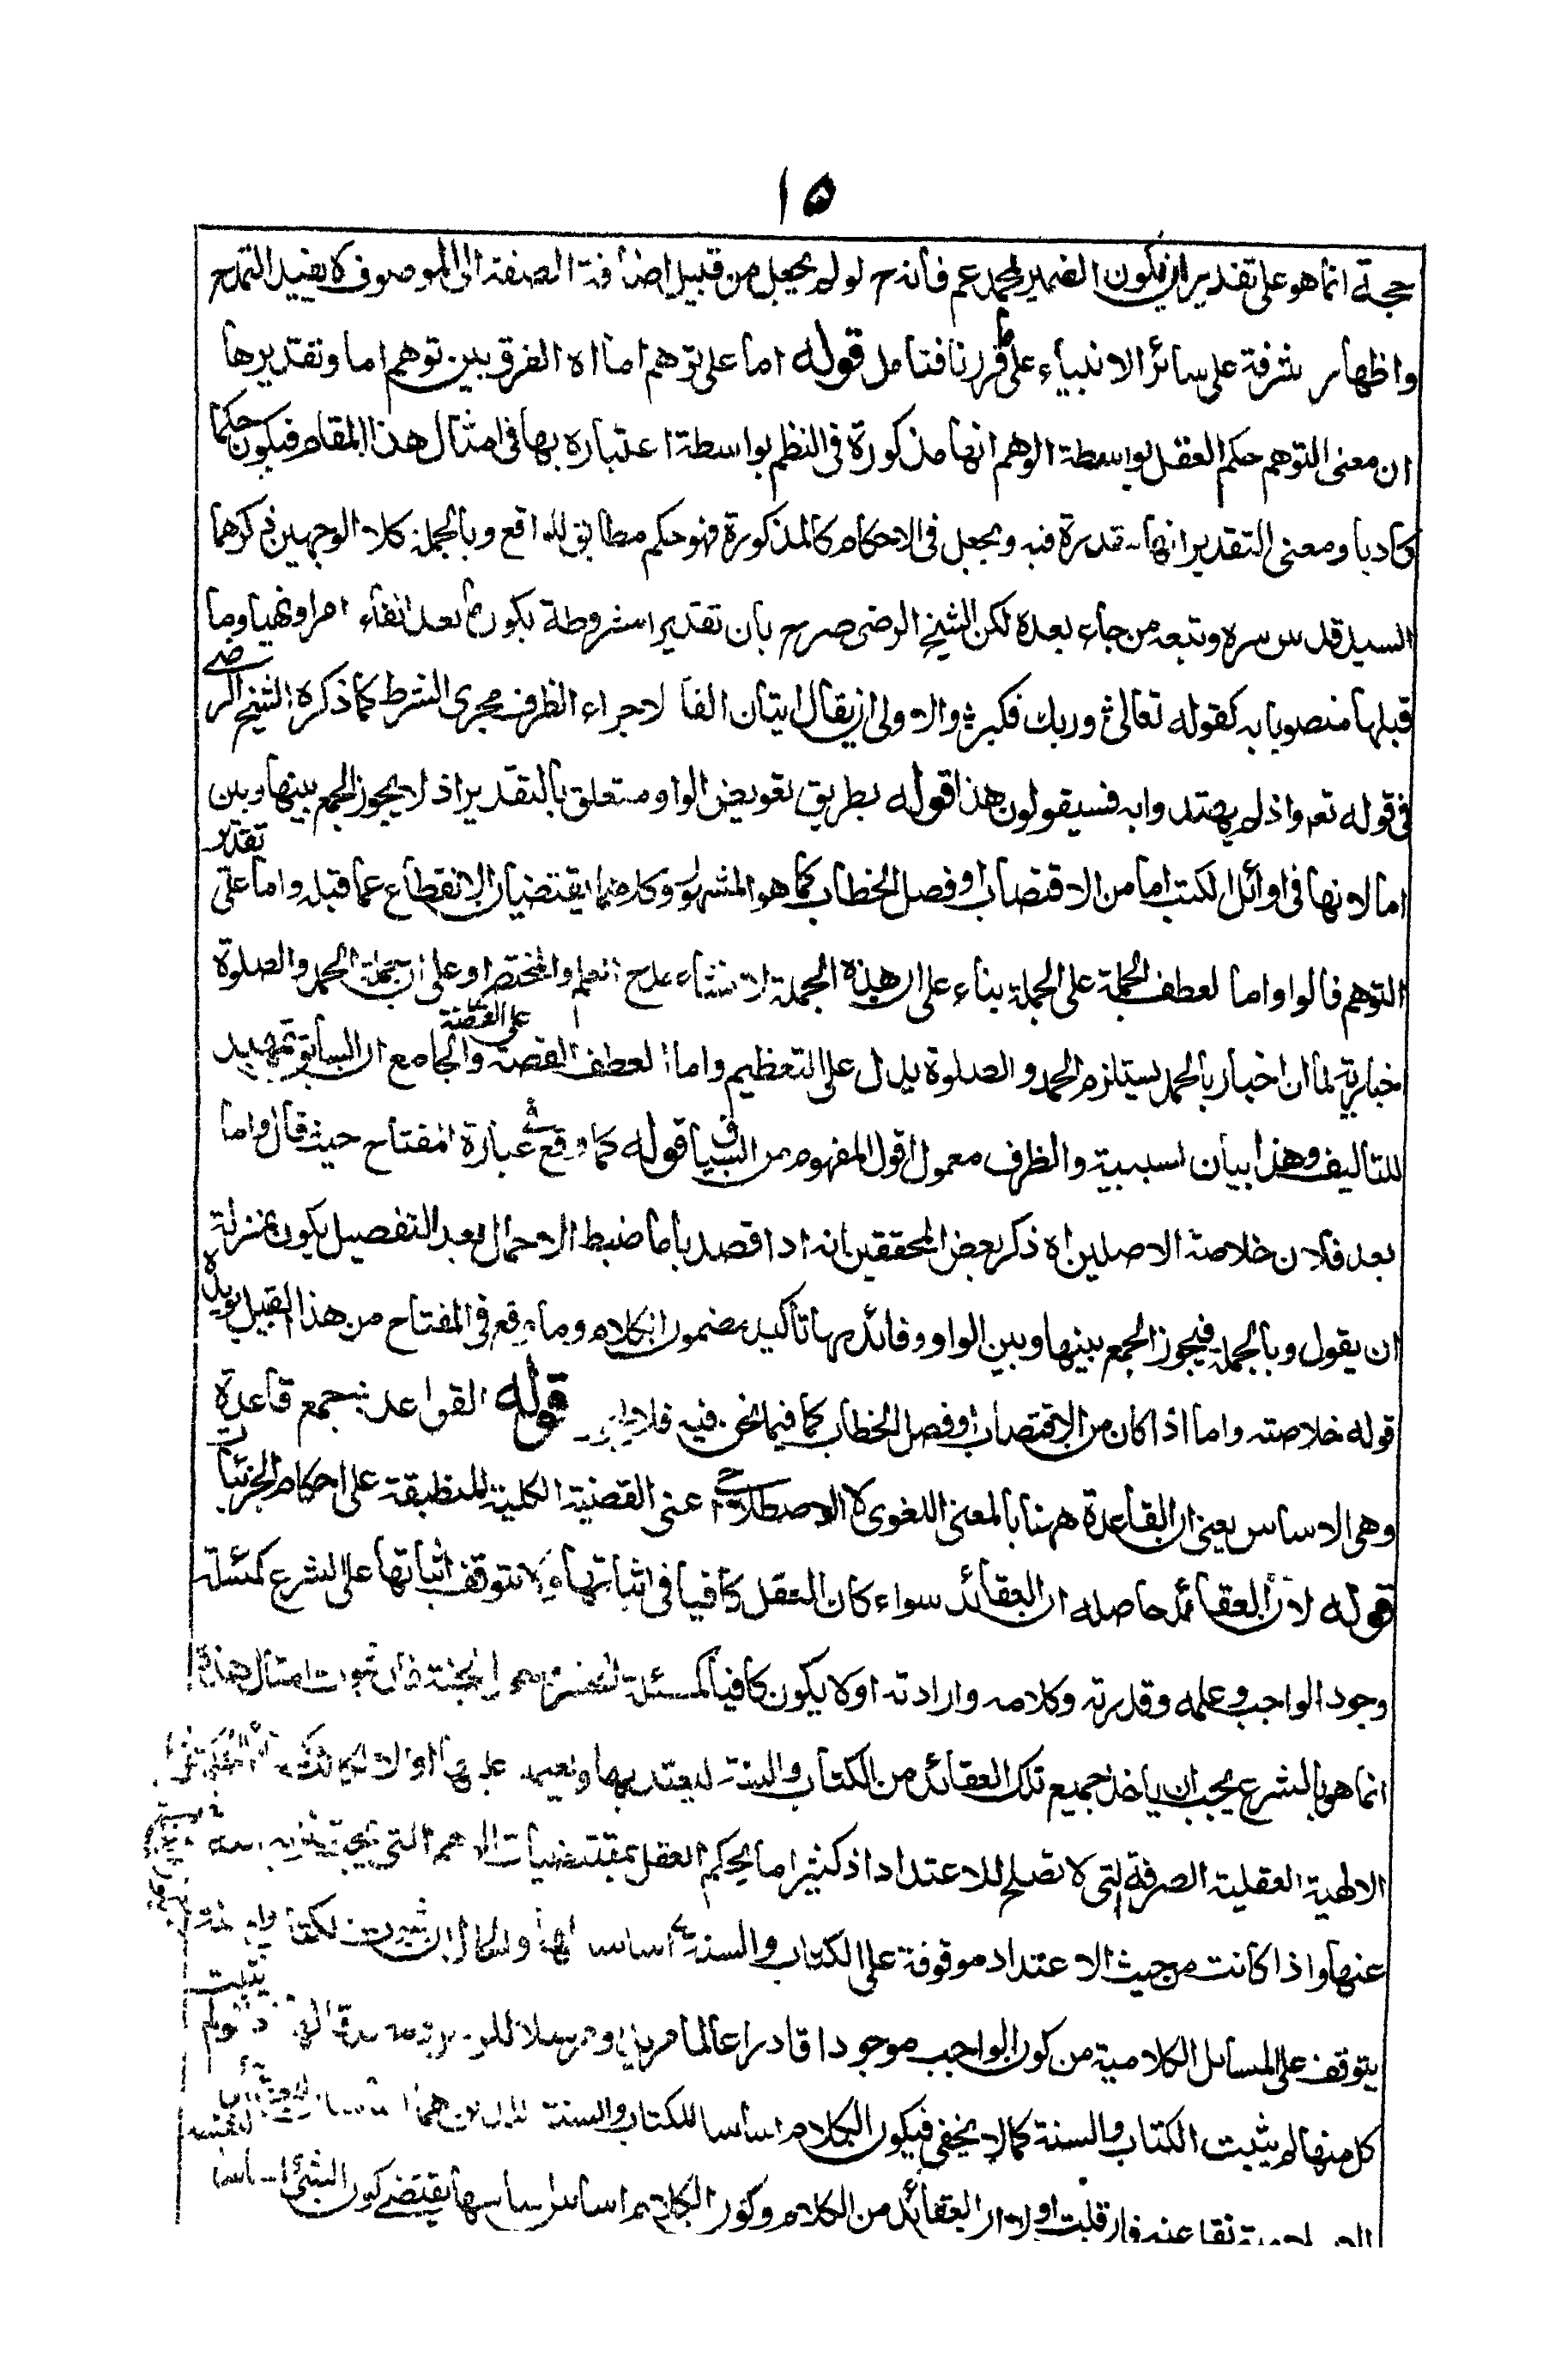 ١٥
حجته انما هو على تقدير ان يكون الضمير لمحمد عم فانه ح لو لم يجعل من قبيل اضافة الصفة الى الموصوف لا يفيد التمدح
واظهار شرفة على سائر الانبياء على ما قررنا فتامل قوله اما على توهم اما اه الفرق بين توهم اما وتقديرها
ان معنى التوهم حكم العقل بواسطة الوهم انها مذكورة في النظم بواسطة اعتباره بها في امثال هذا المقام فيكون حكما
كاذبا ومعنى التقدير انها مقدرة فيه ويجعل في الاحكام كالمذكورة فهو حكم مطابق للواقع وبالجملة كلا الوجهين ذكرهما
السيد قدس سره وتبعه من جاء بعده لكن الشيخ الرضى صرح بان تقدير اما مشروطة بكون ما بعد الفاء امرا ونهيا وما
قبلها منصوبا به كقوله تعالى وربك فكبر والاولى ان يقال اتيان الفا لاجراء الظرف مجرى الشرط كما ذكره الشيخ الرضى
في قوله تعه واذ لم يهتدوا به فسيقولون هذا قوله بطريق تعويض الواو متعلق بالتقدير اذ لا يجوز الجمع بينها وبين
اما لانها في اوائل الكتب اما من الاقتضاب او فصل الخطاب كما هو المشهور وكلاهما يقتضيان الانقطاع عما قبله واما على تقدير
التوهم فالواو اما لعطف الجملة على الجملة بناء على ان هذه الجملة لانشاء مدح العلم والمختصر او على ان جملة الحمد والصلوة
خبارية لما ان اخبار بالحمد يستلزم الحمد والصلوة يدل على التعظيم واما لعطف القصة على القصة والجامع ان السابق تمهيد
للتاليف وهذا بيان لسببية والظرف معمول اقول المفهوم من السياق قوله كما وقع في عبارة المفتاح حيث قال واما
بعد فلان خلاصة الاصلين اه ذكر بعض المحققين انه اذا قصد باما ضبط الاجمال بعد التفصيل يكون بمنزلة
ان يقول وبالجملة فيجوز الجمع بينها وبين الواو وفائدتها تاكيد مضمون الكلام وما وقع في المفتاح من هذا القبيل يؤيده
قوله خلاصته واما اذا كان من الاقتضاب او فصل الخطاب كما فيما نحن فيه فلا يجوز قوله القواعد جمع قاعدة
وهى الاساس يعني ان القاعدة ههنا بالمعنى اللغوى لا الاصطلاحي اعنى القضية الكلية المنطبقة على احكام الجزئيات
قوله لان العقائد حاصله ان العقائد سواء كان العقل كافيا في اثباتها ولا تتوقف اثباتها على الشرع كمسئلة
وجود الواجب وعلمه وقدرته وكلامه وارادته او لا يكون كافيا كمسئلة الحشر واحوال الجنة فان ثبوت امثال هذه
انما هو بالشرع يجب ان ياخذ جميع تلك العقائد من الكتاب والسنة ليعتد بها ويعتمد عليها او لا
الالهية العقلية الصرفة التى لا تصلح للاعتداد اذ كثيرا ما يحكم العقل بمقتضيات الوهم التى يجب تنزيه
عنها واذا كانت من حيث الاعتداد موقوفة على الكتاب والسنة اساسا لها ولما كان ثبوت الكتاب والسنة
يتوقف على المسائل الكلامية من كون الواجب موجودا قادرا عالما مريدا ومرسلا للرسل
كل منها لم يثبت الكتاب والسنة كما لا يخفى فيكون الكلام اساسا للكتاب والسنة
فان قلت اولا ان العقائد من الكلام وكون الكلام اساس اساسها يقتضى كون الشئ اساسا